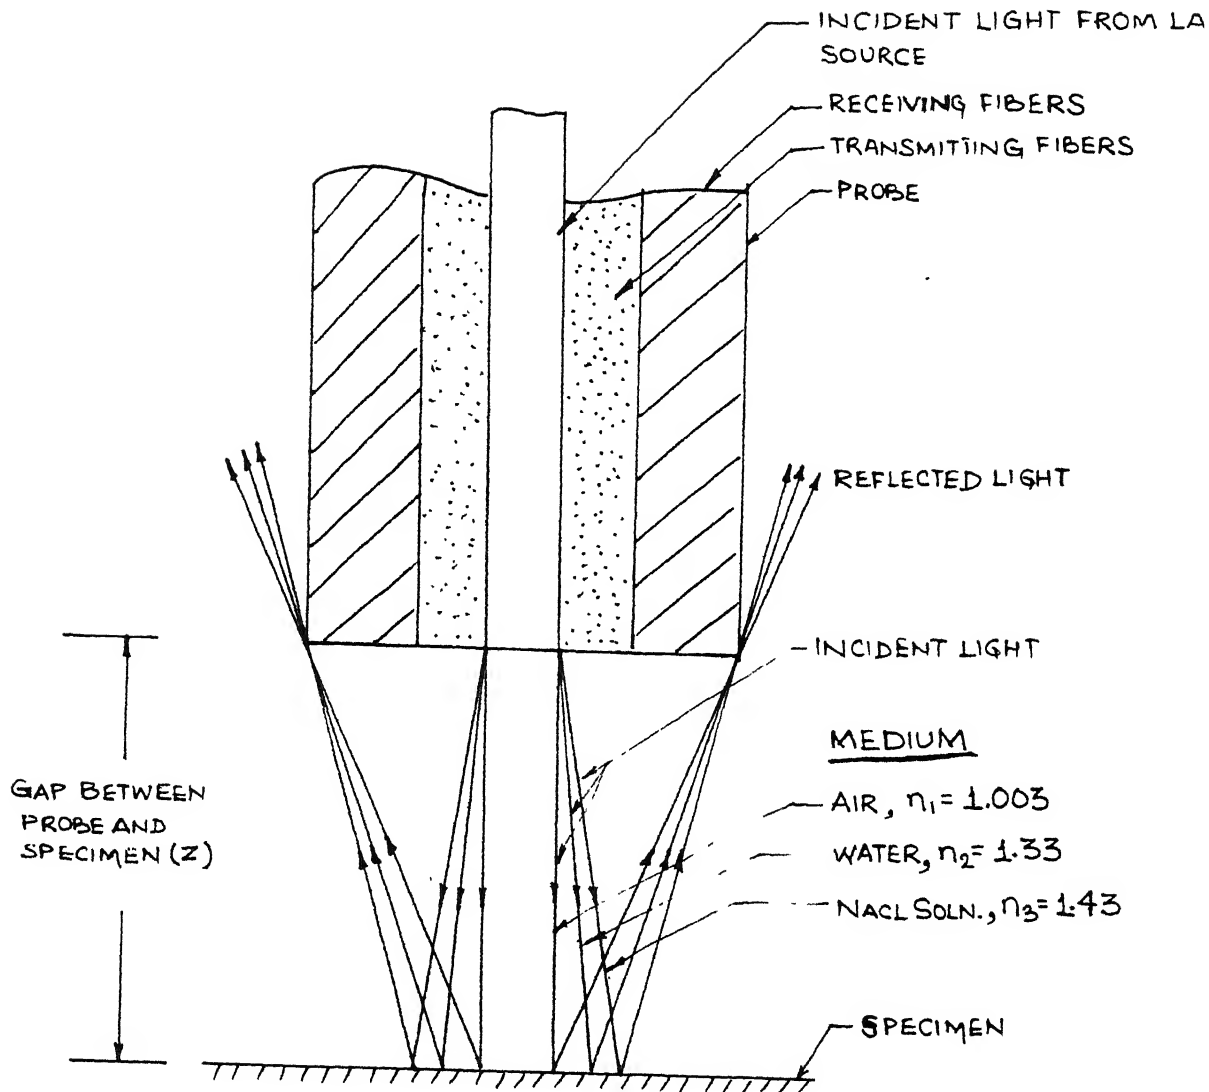 INCIDENT LIGHT FROM LA
SOURCE
RECEIVING FIBERS
TRANSMITIING FIBERS
PROBE
REFLECTED LIGHT
INCIDENT LIGHT
MEDIUM
AIR, n₁ = 1.003
WATER, n₂ = 1.33
NACL SOLN., n₃ = 1.43
GAP BETWEEN
PROBE AND
SPECIMEN (Z)
SPECIMEN